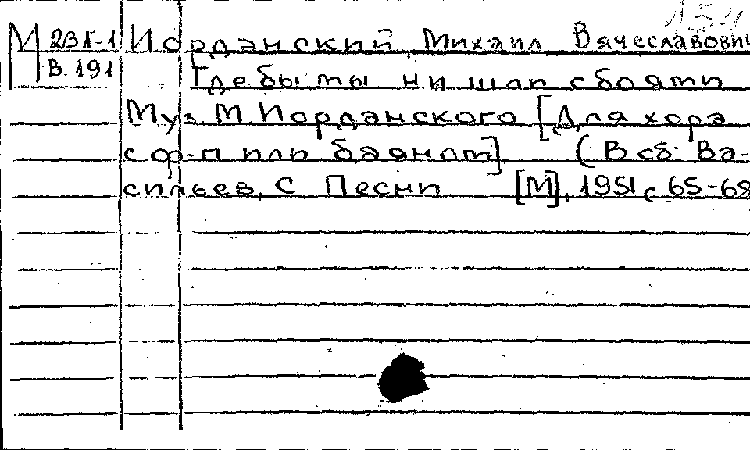 М 231-1 Иорданский, Михаил Вячеславович
В.191 Где бы ты ни шап с боятп
Муз. М. Иорданского [Для хора
с ф-п или баяном] (В сб: Ва-
сильев, С Песни [М], 1951, с 65-68